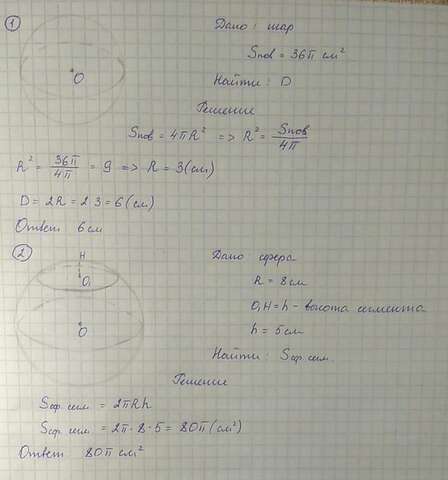 1
Дано: шар
Sпов = 36π см²
O
Найти: D
Решение
Sпов = 4πR² => R² = Sпов/4π
R² = 36π/4π = 9 => R = 3(см)
D = 2R = 2·3 = 6(см)
Ответ 6см
2
H
Дано сфера
O₁
R = 8см
O₁H = h - высота сегмента
O
h = 5см
Найти: Sсф.сегм.
Решение
Sсф.сегм. = 2πRh
Sсф.сегм. = 2π·8·5 = 80π(см²)
Ответ 80π см²